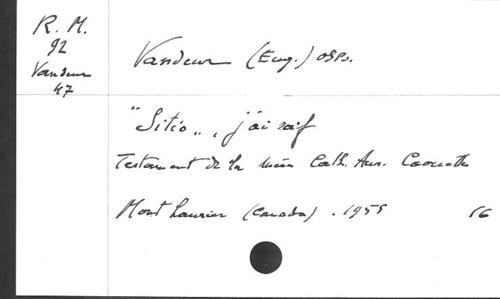 R. M.
92
Vandeur
47
Vandeur (Eug.) OSB.
"Sitio", j'ai soif
Testament de la mère Cath. Aur. Caouette
Mont Laurier (Canada). 1955 16